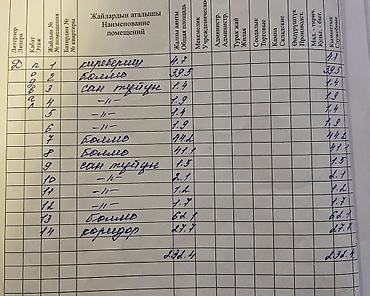 Литерлер Литера
Кабат Этаж
Жайдын №
Батирдин № № квартиры
Жайлардын аталышы Наименование помещений
Жалпы аянты Общая площадь
Админстр. Админстр.
Турак жай Жилая
Соодалык Торговые
Кампа Складские
Өндүрүштүк Производст.
Кызматтык Служебные
Д п 1 кире бериш 4.7 4.7
о 2 бөлмө 39.5 39.5
3 сан түйүн 1.4 1.4
4 -"- 1.9 1.9
5 -"- 1.4 1.4
6 -"- 1.9 1.9
7 бөлмө 44.2 44.2
8 бөлмө 41.1 41.1
9 сан түйүн 1.5 1.5
10 -"- 2.1 2.1
11 -"- 1.2 1.2
12 -"- 1.7 1.7
13 бөлмө 62.1 62.1
14 коридор 27.7 27.7
232.4 232.4